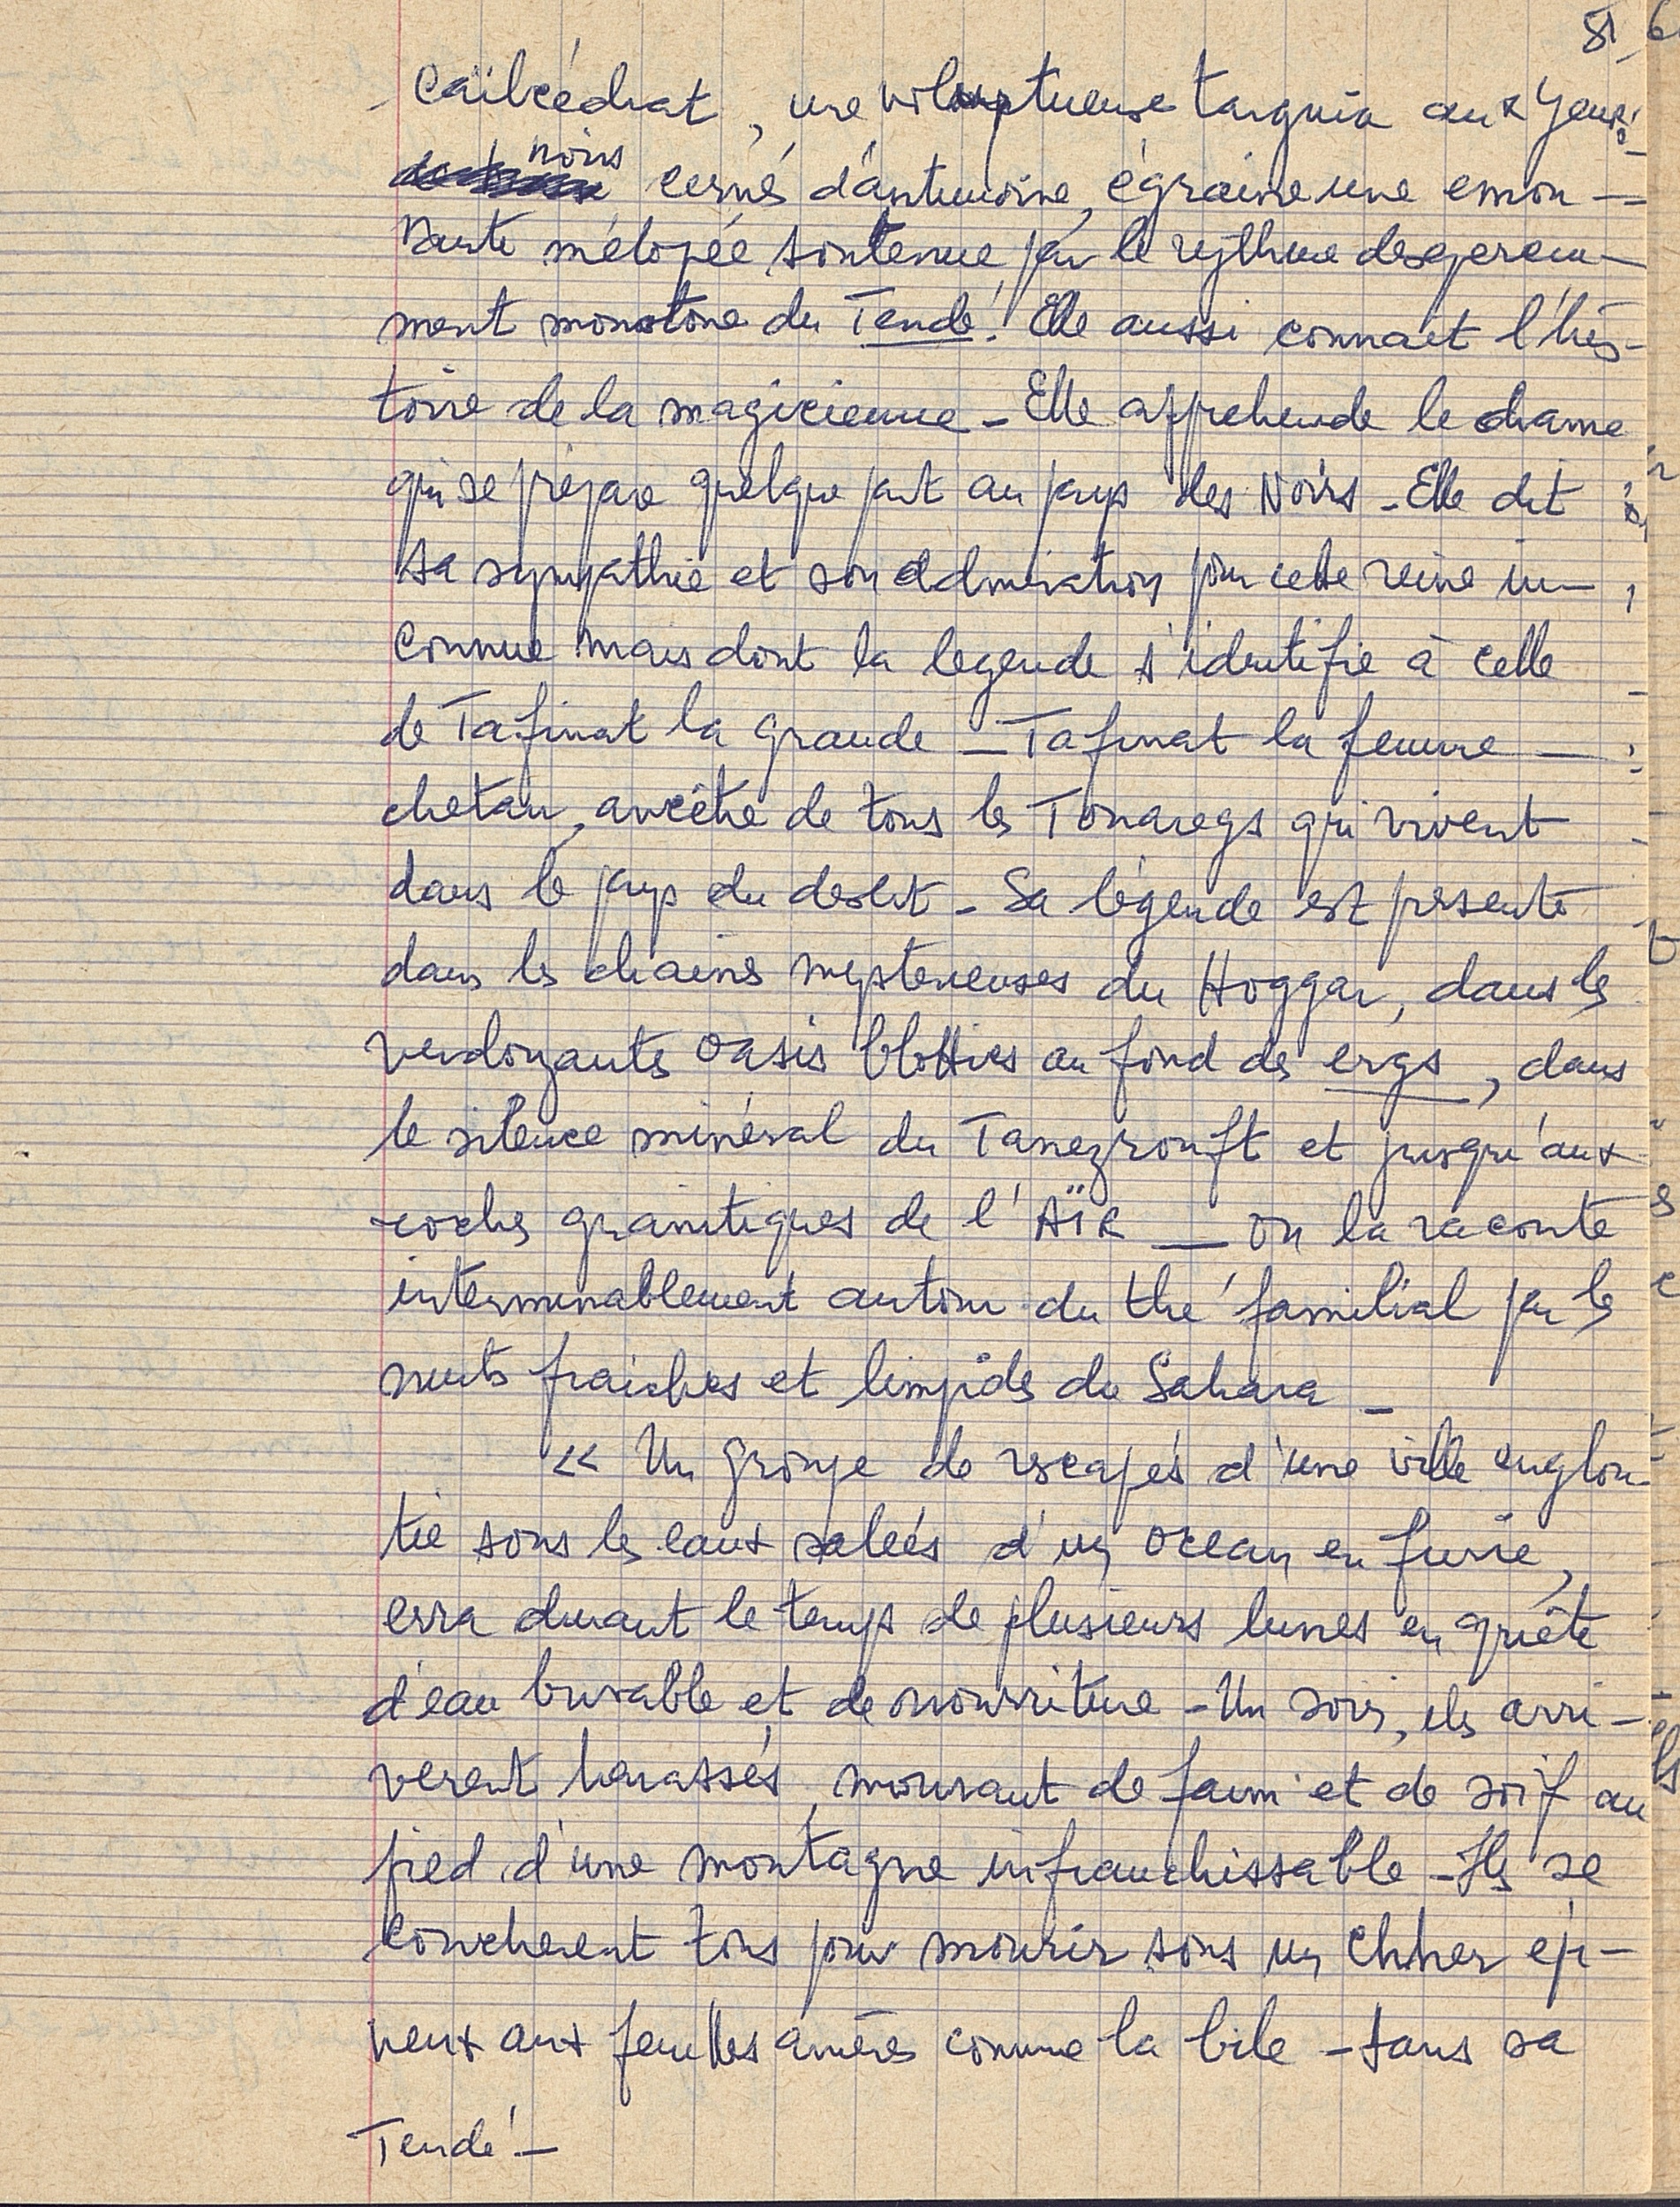 51
Caïlcédrat, une voluptueuse targuia aux yeux
noirs cernés d'antimoine, égraine une émou-
vante mélopée soutenue par le rythme desesperem-
ment monotone du Tendé. Elle aussi connait l'his-
toire de la magicienne - Elle apprehende le drame
qui se prépare quelque part au pays des Noirs - Elle dit
sa sympathie et son admiration pour cette reine in-
connue mais dont la legende s'identifie à celle
de Tafinat la grande - Tafinat la femme -
chetan, ancêtre de tous les Touaregs qui vivent
dans le pays du desert - Sa légende est présente
dans les chaines mysterieuses du Hoggar, dans les
verdoyantes oasis blotties au fond des ergs, dans
le silence minéral du Tanezrouft et jusqu'aux
roches granitiques de l'AÏR - On la raconte
interminablement autour du thé familial par les
nuits fraiches et limpides du Sahara -
<< Un groupe de rescapés d'une ville englou-
tie sous les eaux salées d'un océan en furie,
erra durant le temps de plusieurs lunes en quête
d'eau buvable et de nourriture - Un soir, ils arri-
verent harassés, mourant de faim et de soif au
pied d'une montagne infranchissable - Ils se
coucherent tous pour mourir sous un épi-
neux aux feuilles amères comme la bile - dans sa
Tendé -